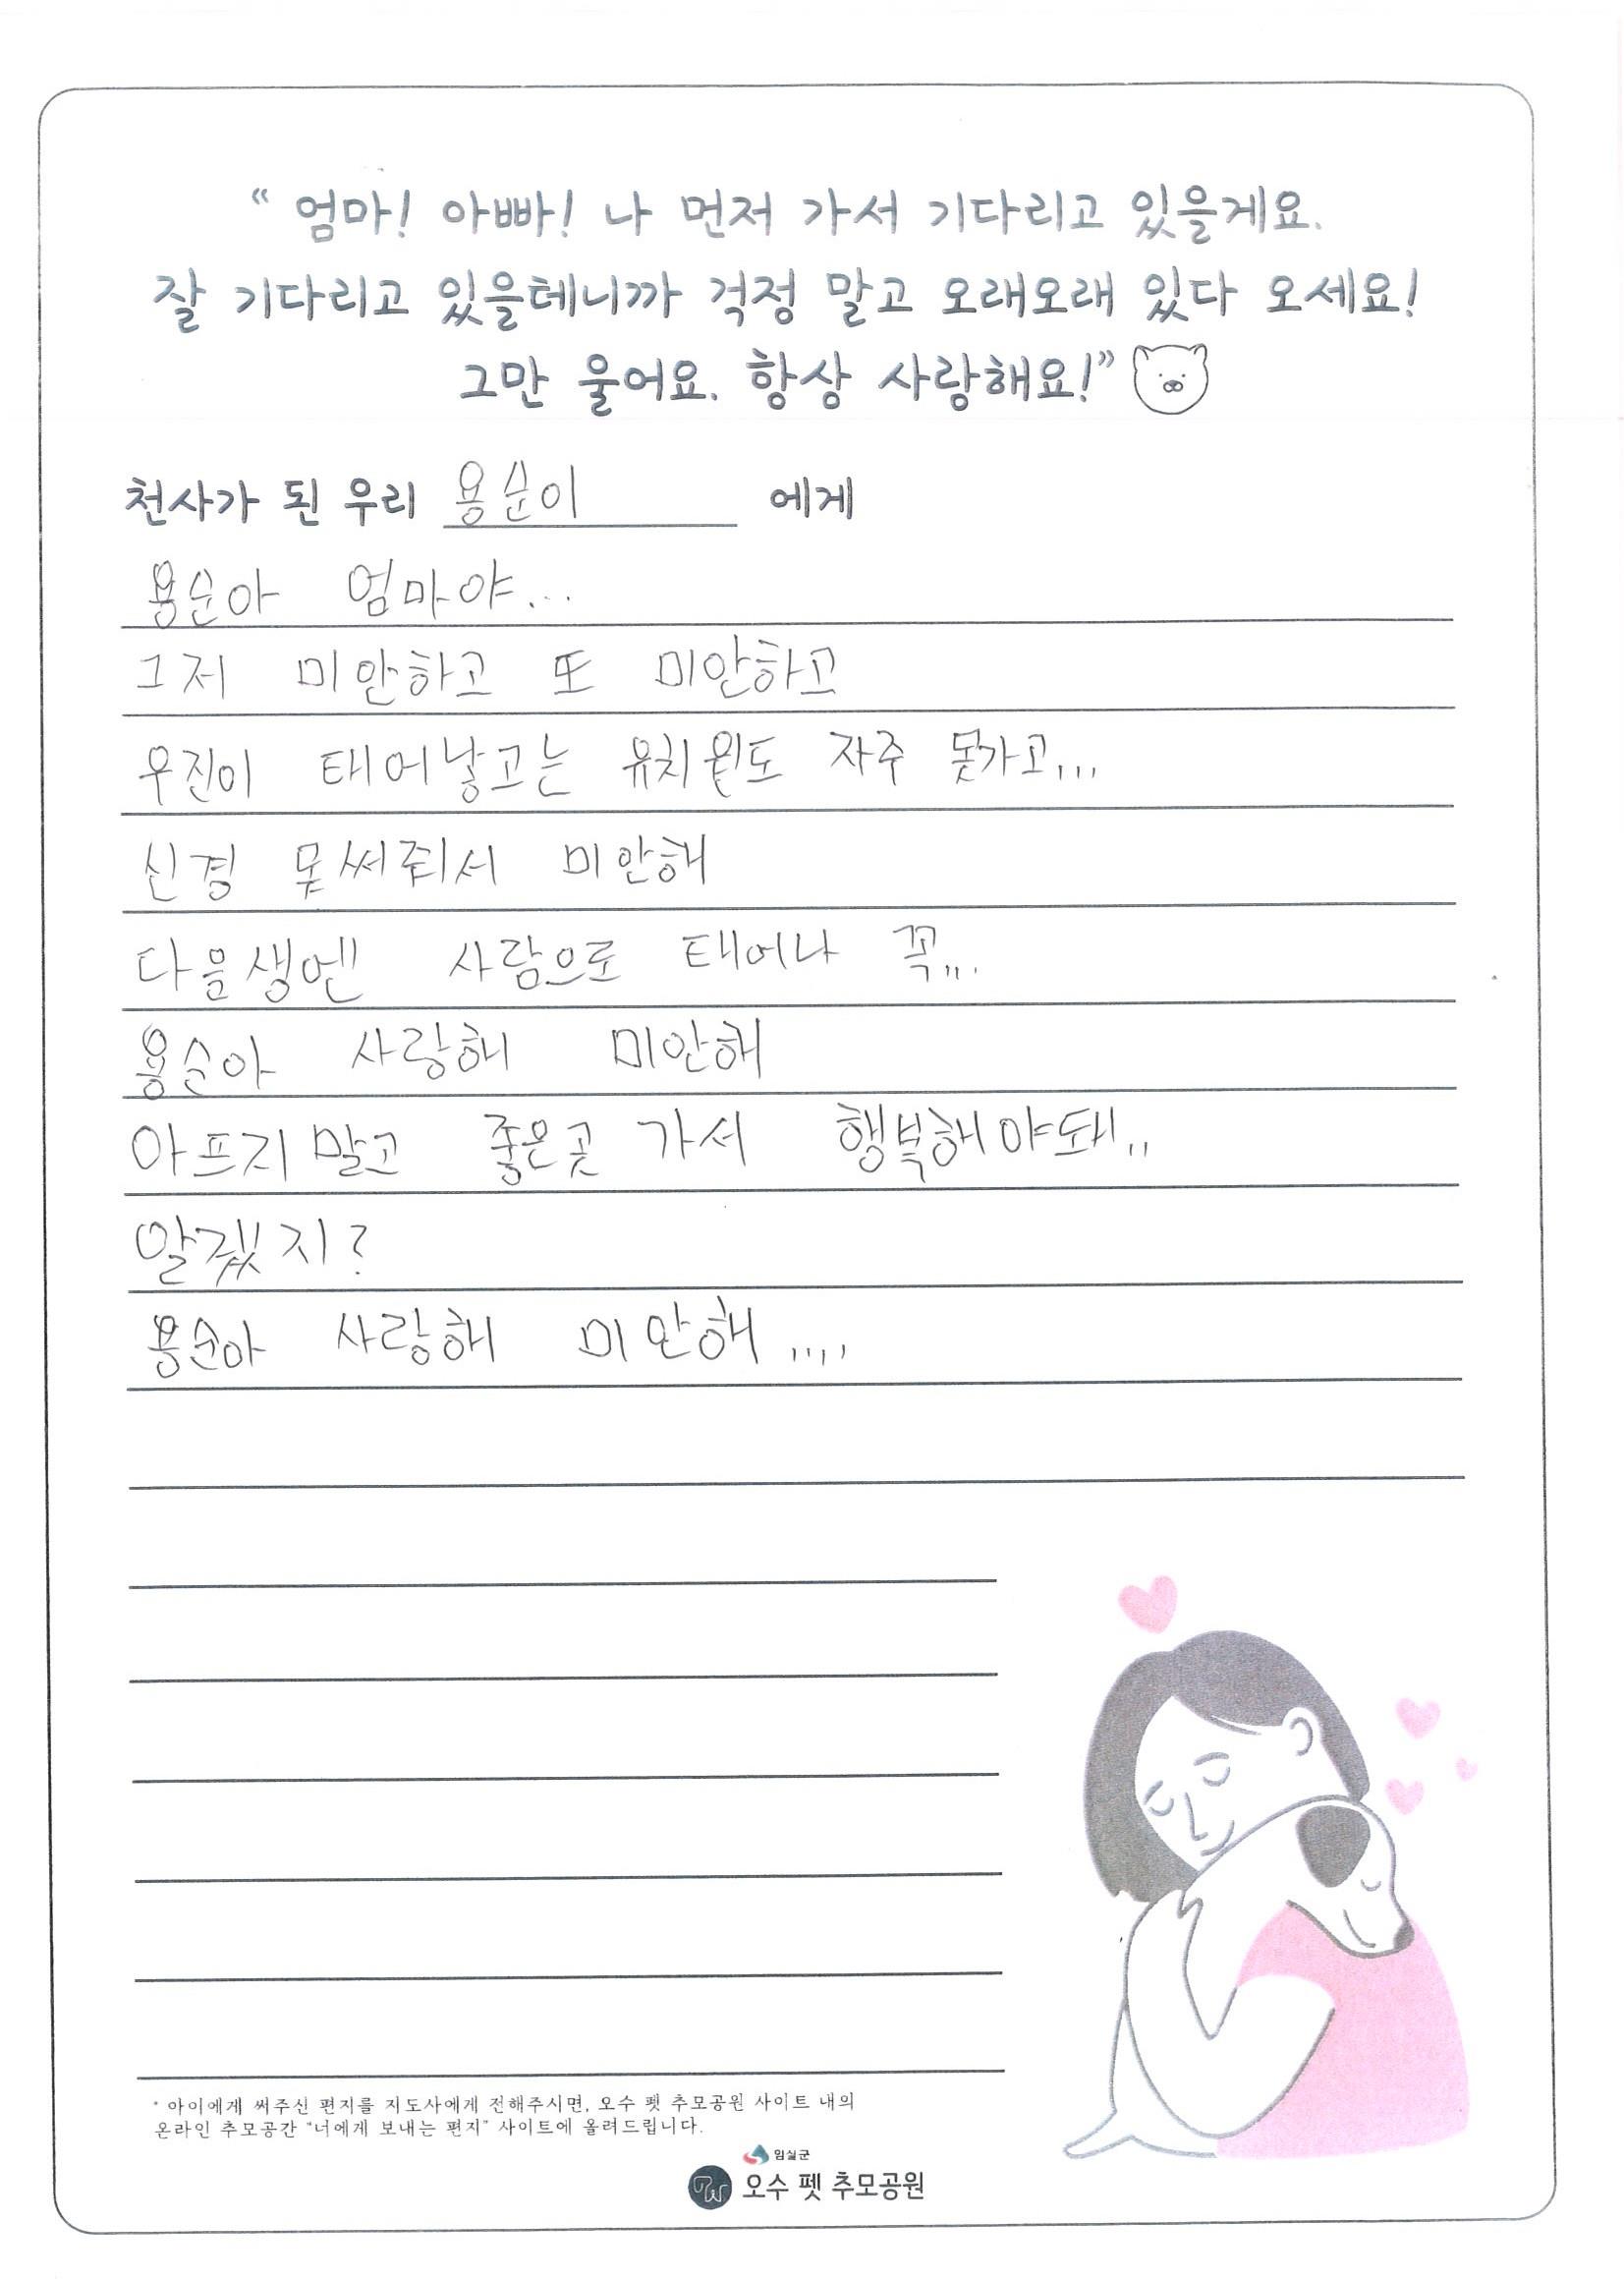 “ 엄마! 아빠! 나 먼저 가서 기다리고 있을게요.
잘 기다리고 있을테니까 걱정 말고 오래오래 있다 오세요!
그만 울어요. 항상 사랑해요!”
천사가 된 우리 용순이 에게
용순아 엄마야...
그저 미안하고 또 미안하고
우진이 태어낳고는 유치원도 자주 못가고...
신경 못써줘서 미안해
다음생엔 사람으로 태어나 꼭...
용순아 사랑해 미안해
아프지말고 좋은곳 가서 행복해야돼..
알겠지?
용순아 사랑해 미안해....
* 아이에게 써주신 편지를 지도사에게 전해주시면, 오수 펫 추모공원 사이트 내의
온라인 추모공간 "너에게 보내는 편지" 사이트에 올려드립니다.
임실군
오수 펫 추모공원